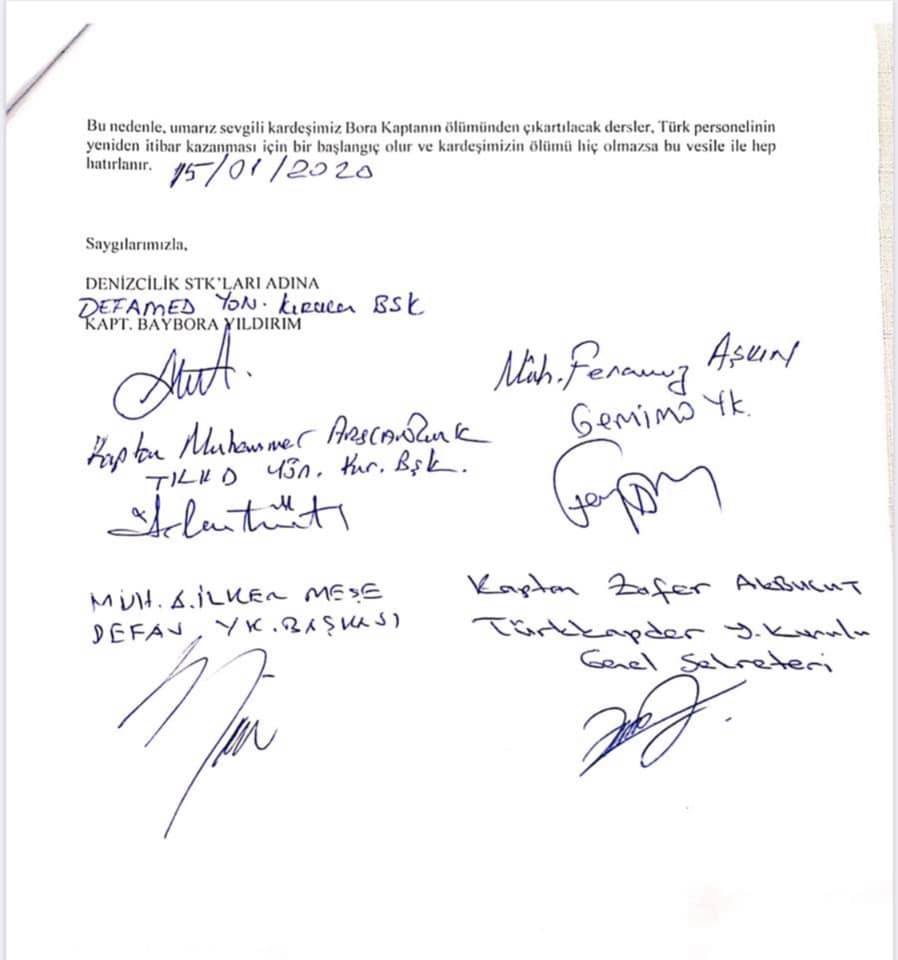 Bu nedenle, umarız sevgili kardeşimiz Bora Kaptanın ölümünden çıkartılacak dersler, Türk personelinin
yeniden itibar kazanması için bir başlangıç olur ve kardeşimizin ölümü hiç olmazsa bu vesile ile hep
hatırlanır. 15/01/2020
Saygılarımızla,
DENİZCİLİK STK'LARI ADINA
DEFAMED YÖN. BŞK
KAPT. BAYBORA YILDIRIM
Müh. Feramuz AŞKIN
GEMİMO YK.
Kaptan Muhammer
TILHD YÖn. Kur. Bşk.
MÜH. A.İLKER MEŞE
DEFAV YK. BAŞKANI
Kaptan Zafer AKBULUT
Türkkapder Y. Kurulu
Genel Sekreteri